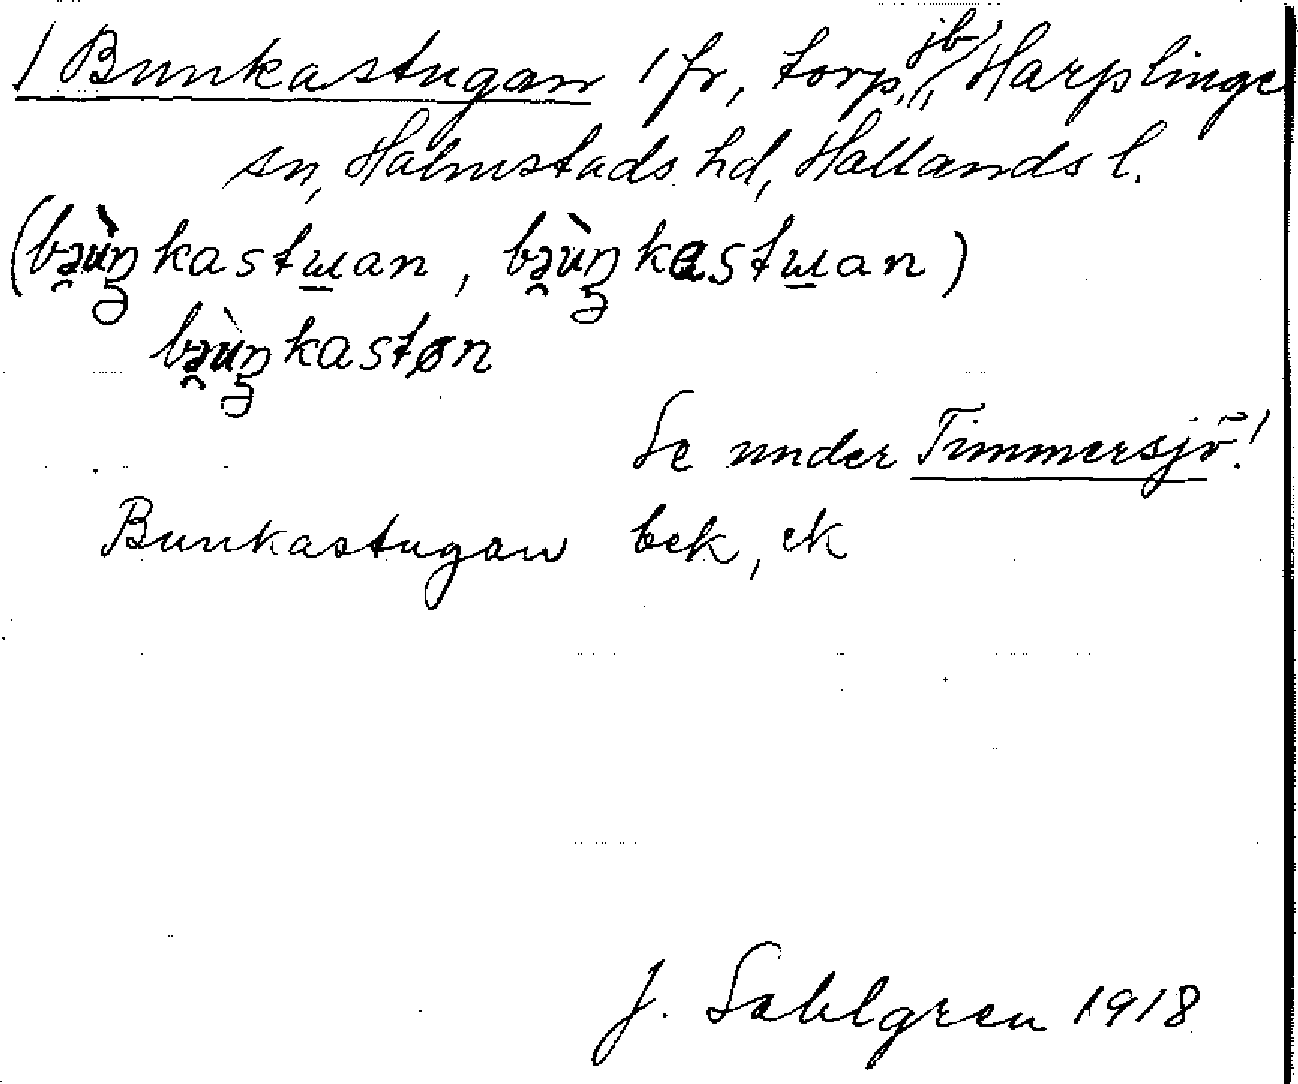 / Bunkastugan 1 fr, torp, jb, Harplinge
sn, Halmstads hd, Hallands l.
(bə̯ùŋkastɯ̲an, bə̯ùŋkastɯ̲an)
bə̯ùŋkastøn
Se under Timmersjö!
Bunkastugan bek, ek
J. Sahlgren 1918